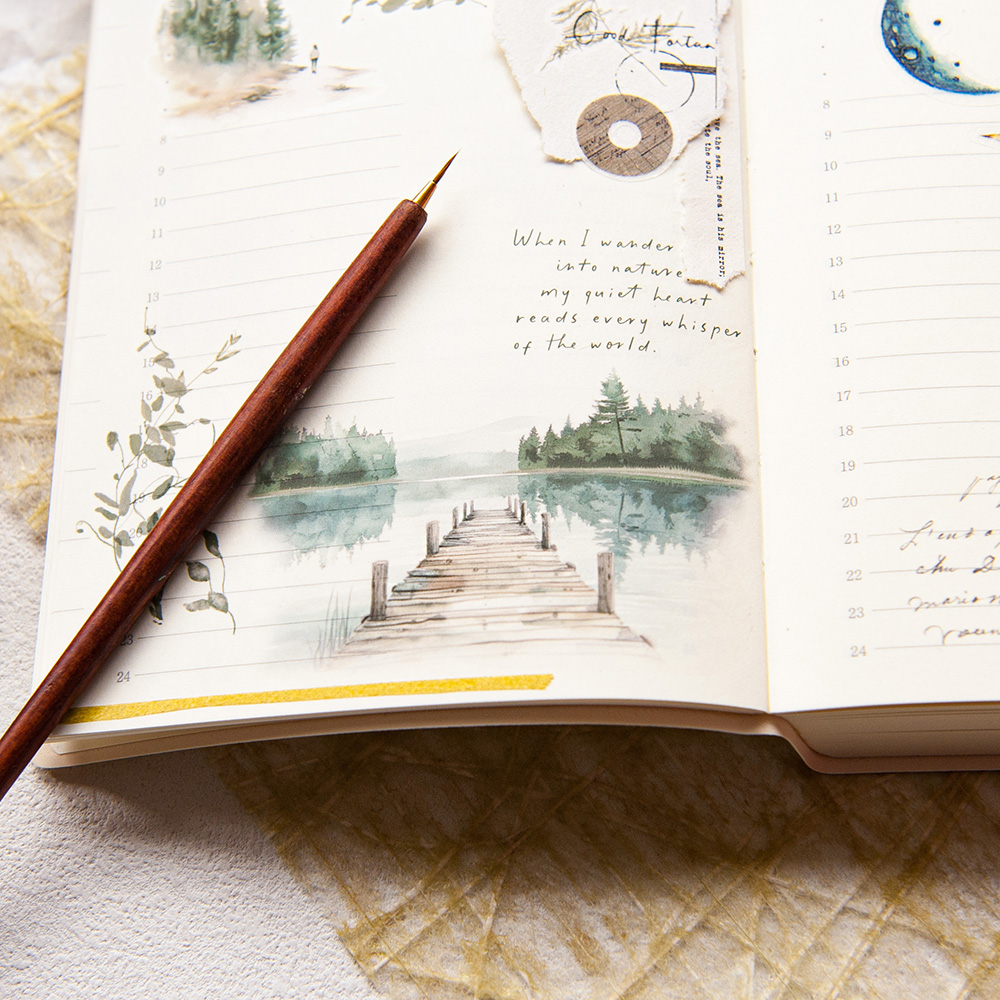 Good Fortun
e the sea. The sea is his mirror,
te the soul,
When I wander
into nature
my quiet heart
reads every whisper
of the world.
8
9
10
11
12
13
16
17
18
19
20
23
24
8
9
10
11
12
13
14
15
16
17
18
19
20
21
22
23
24